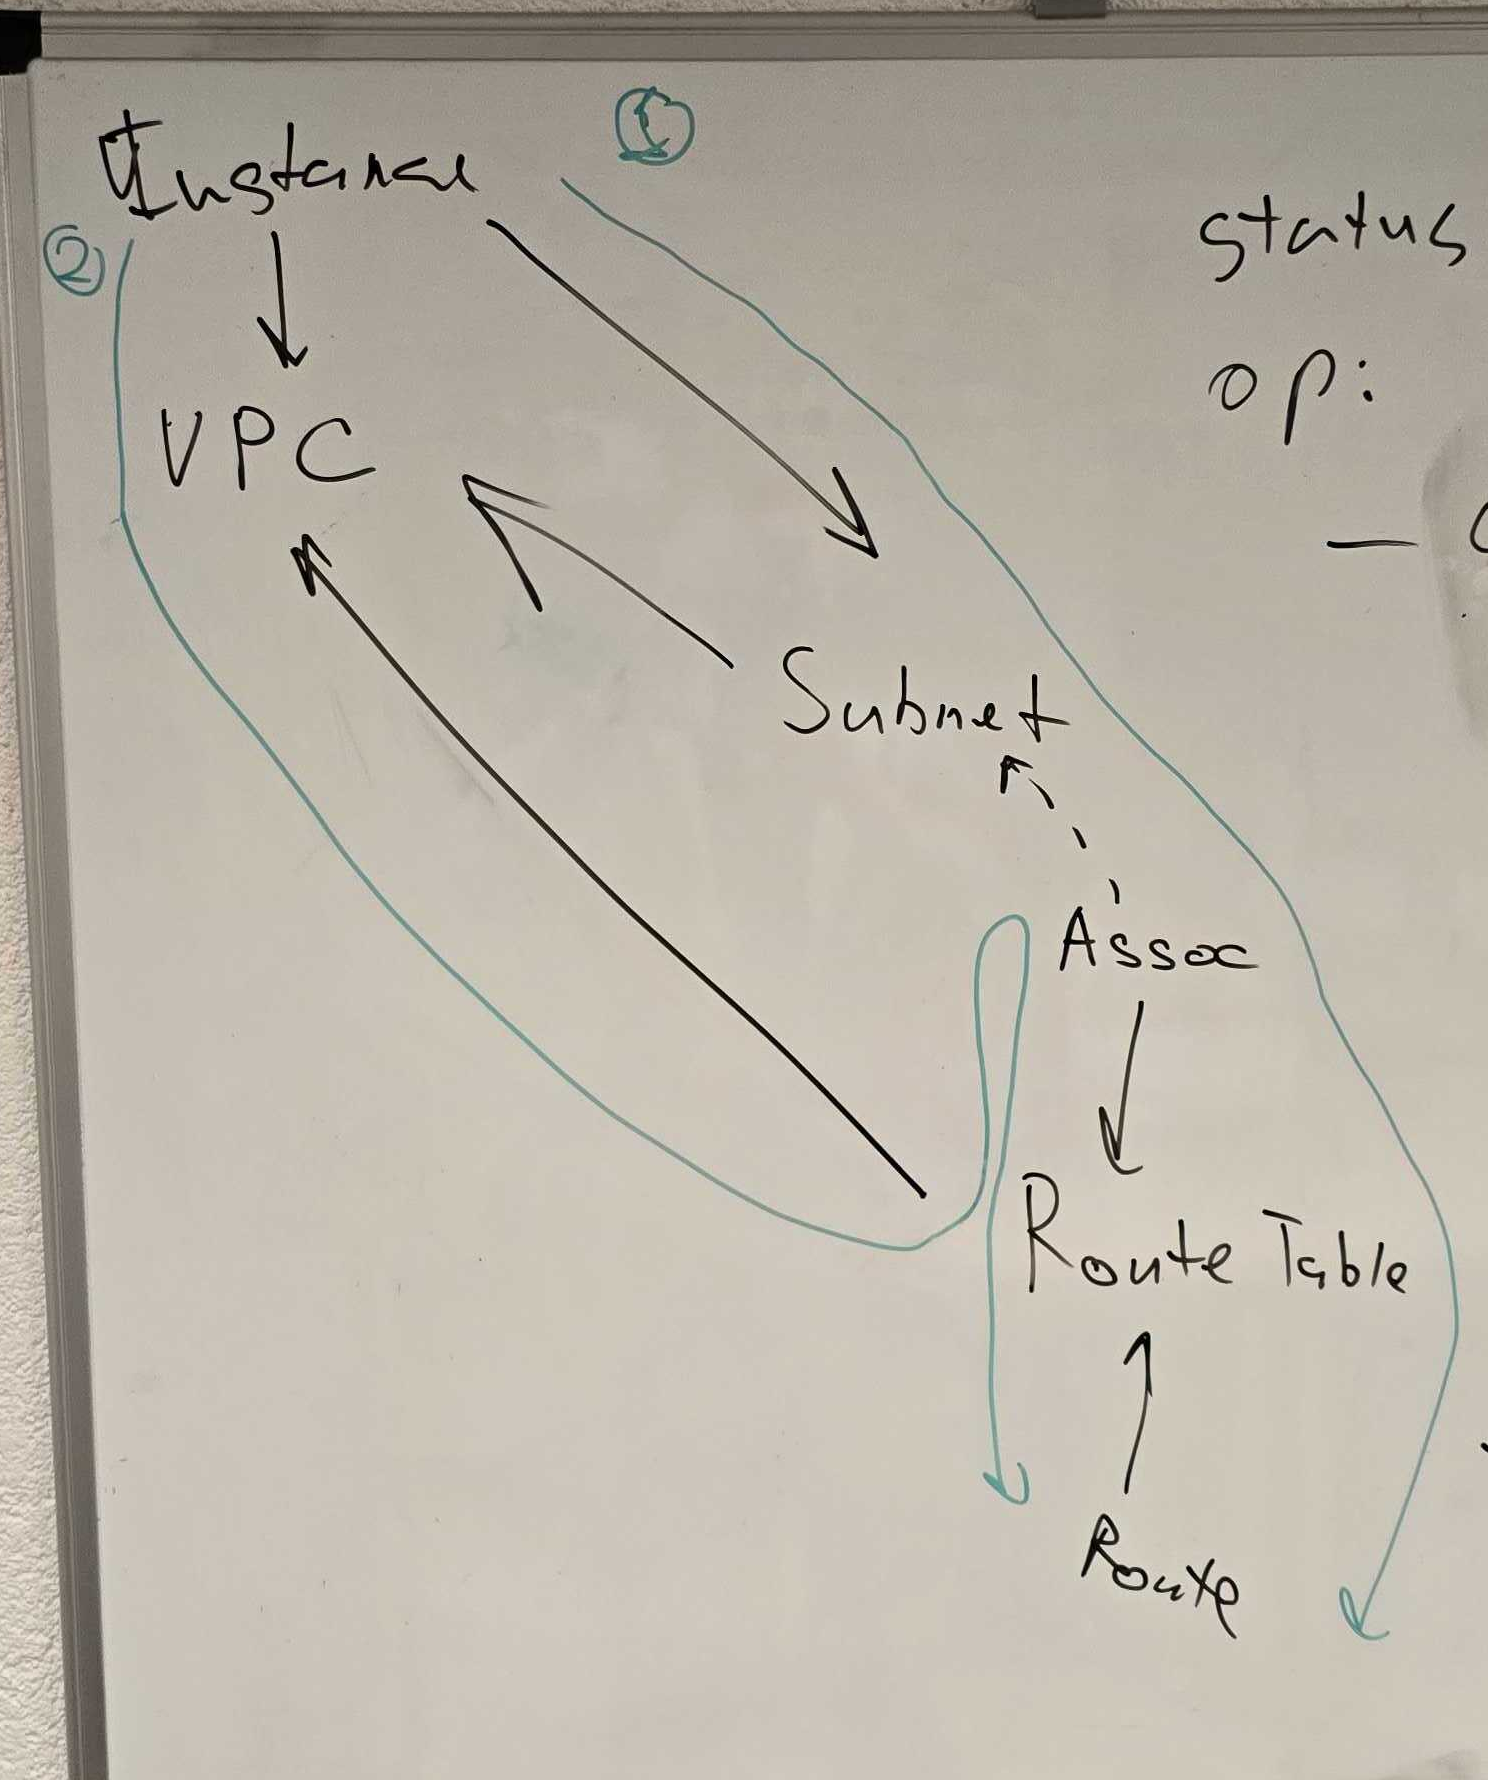 ①
Instance
②
VPC
Subnet
Assoc
Route Table
Route
status
op:
—